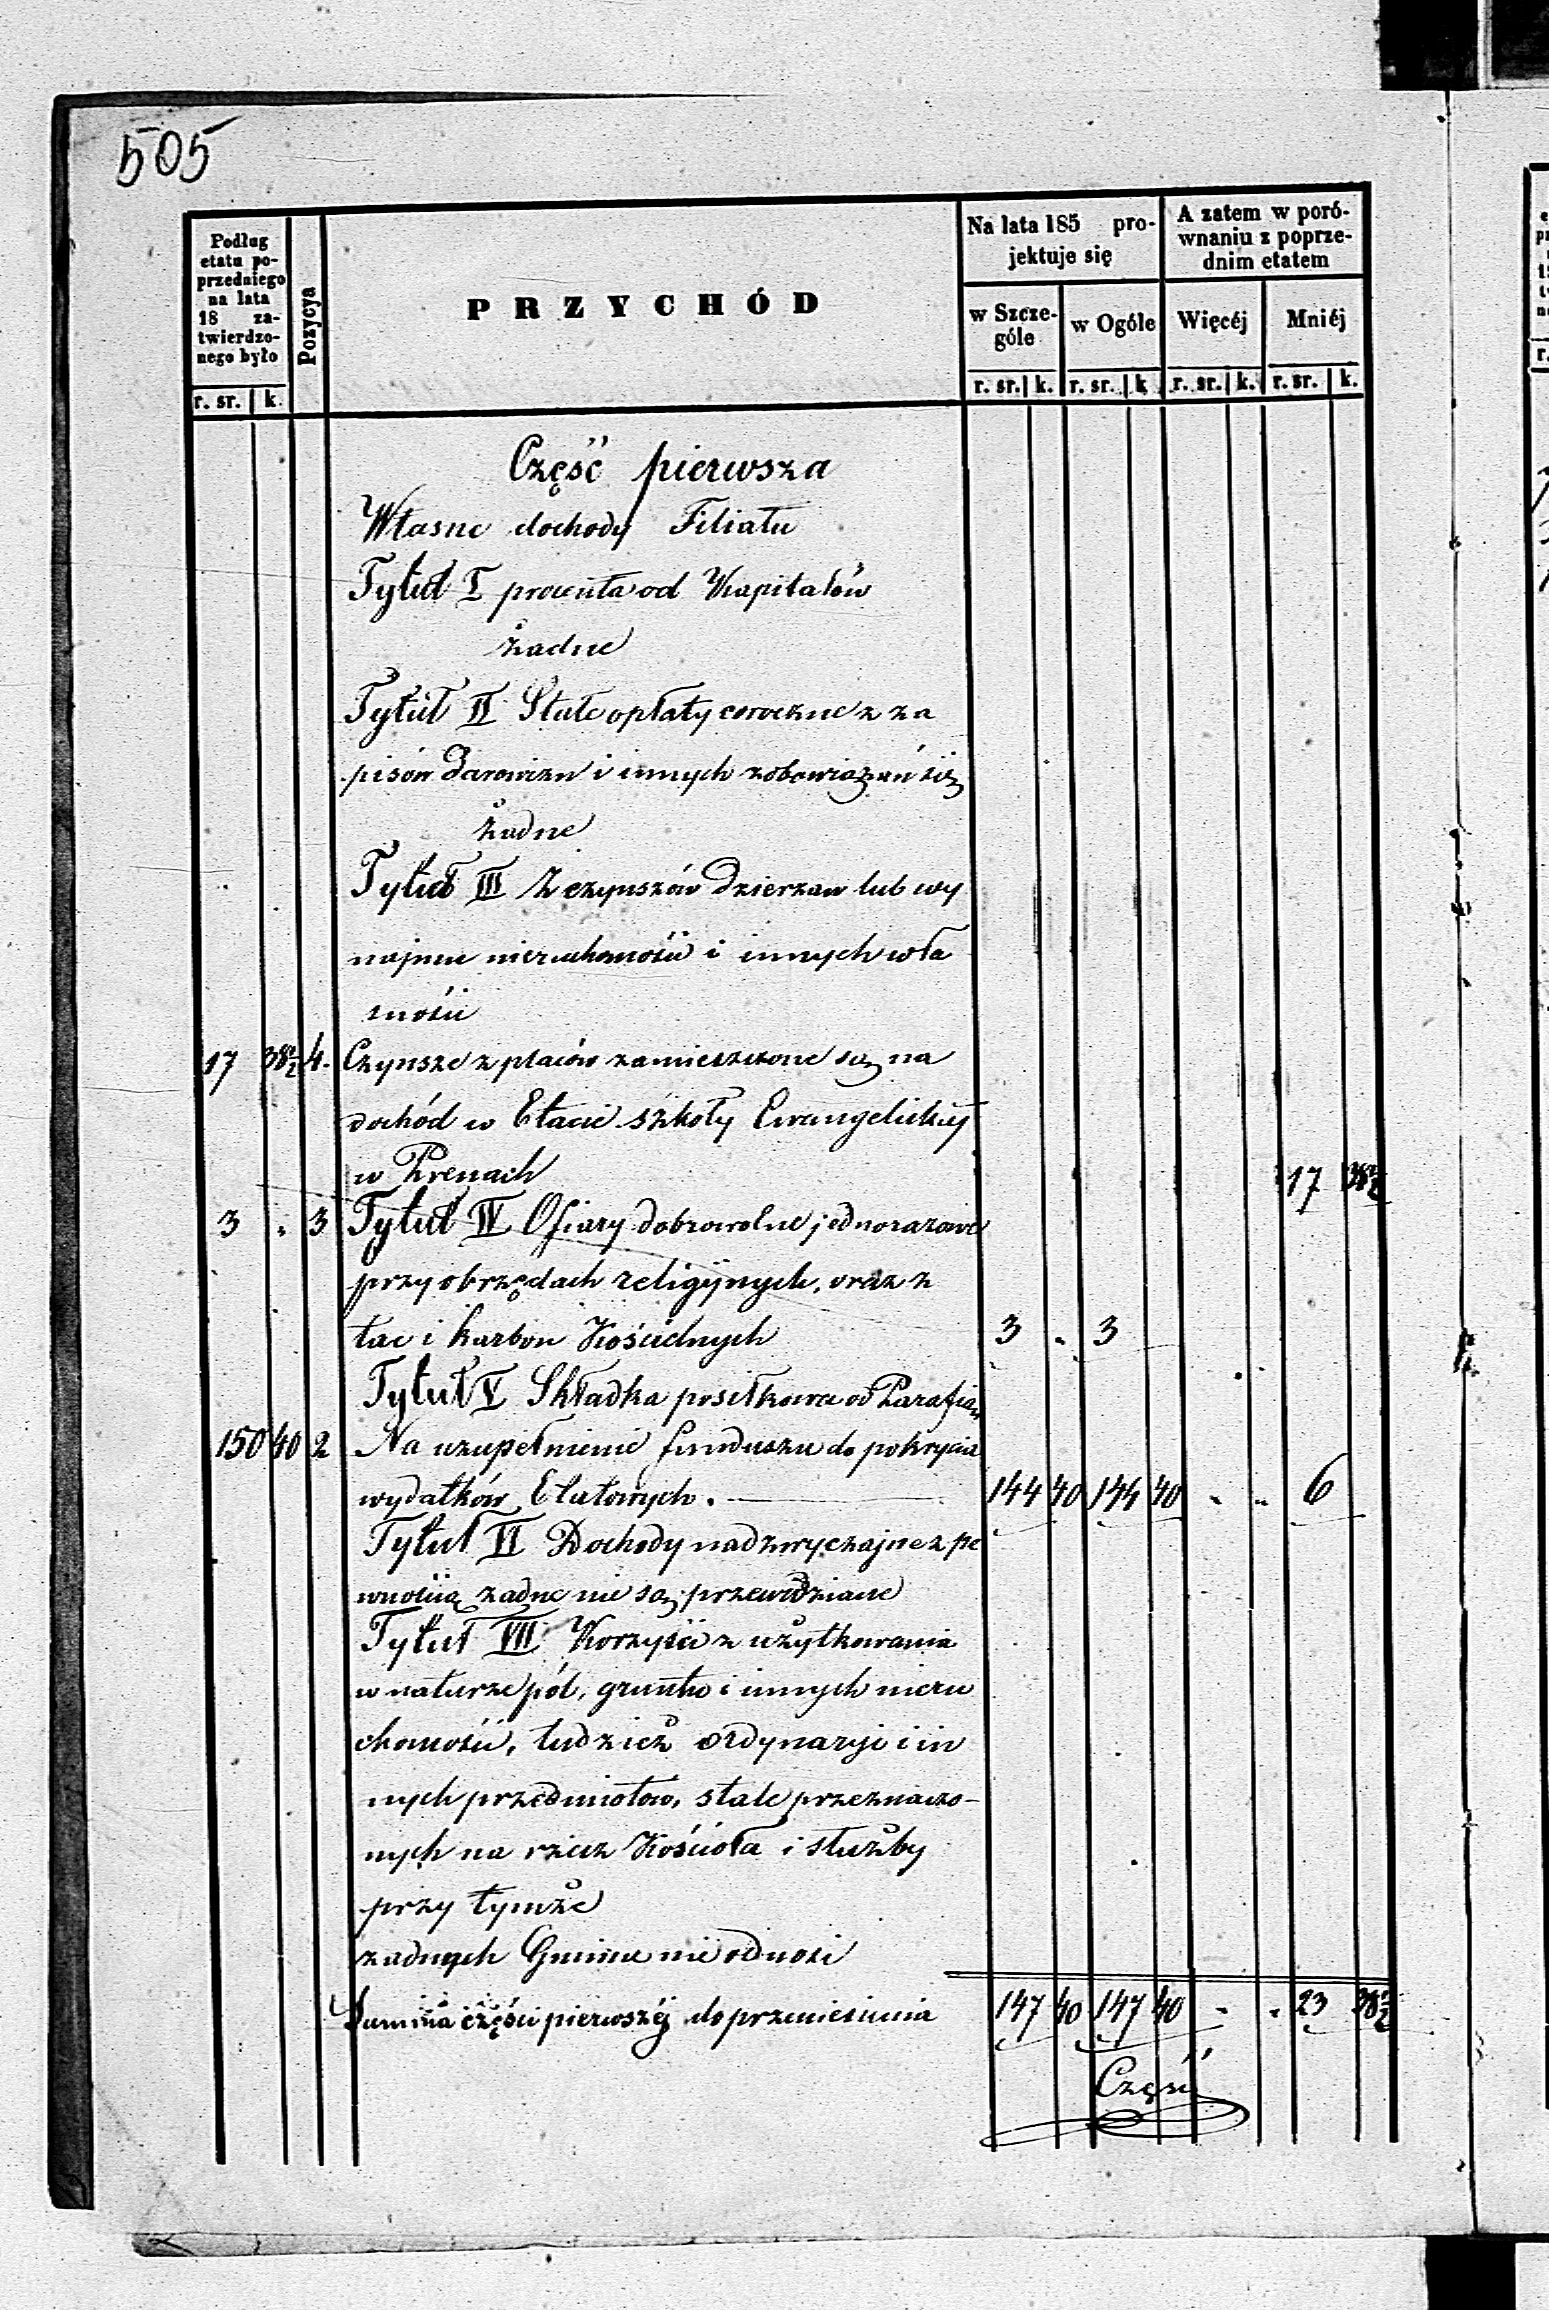 505
Podług etatu poprzedniego na lata 18 zatwierdzonego było
r. sr. k.
Pozycya
PRZYCHÓD
Na lata 185 projektuje się
w Szczególe
w Ogóle
r. sr. k. r. sr. k
A zatem w porównaniu z poprzednim etatem
Więcéj
Mniéj
r. sr. k. r. sr. k.
Część pierwsza
Własne dochody Filiału
Tytuł I procenta od Kapitałów
żadne
Tytuł II Stałe opłaty coroczne z za
pisów Darowizn i innych zobowiązań się
żadne
Tytuł III Z czynszów Dzierzaw lub wy
najmu nieruchomości i innych wła
sności
17 38½ 4. Czynsze z placów zamieszczone są na
dochód w Etacie szkoły Ewangelickiéj
w Prenach 17 38½
3 „ 3 Tytuł IV Ofiary dobrowolne jednorazowe
przy obrzędach religijnych, oraz z
tac i karbon Kościelnych 3 „ 3
Tytuł V Składka posiłkowa od Parafian
150 40 2 Na uzupełnienie funduszu do pokrycia
wydatków Etatowych. 144 40 144 40 „ „ 6
Tytuł VI Dochody nadzwyczajne z pe
wnością żadne nie są przewidziane
Tytuł VII Korzyści z użytkowania
w naturze pól, gruntów i innych nieru
chomości, tudzież ordynaryi i in
nych przedmiotów, stale przeznaczo-
nych na rzecz Kościoła i służby
przy tymże
żadnych Gmina nie odnosi
Summa części pierwszéj do przeniesienia 147 40 147 40 „ „ 23 38½
Część